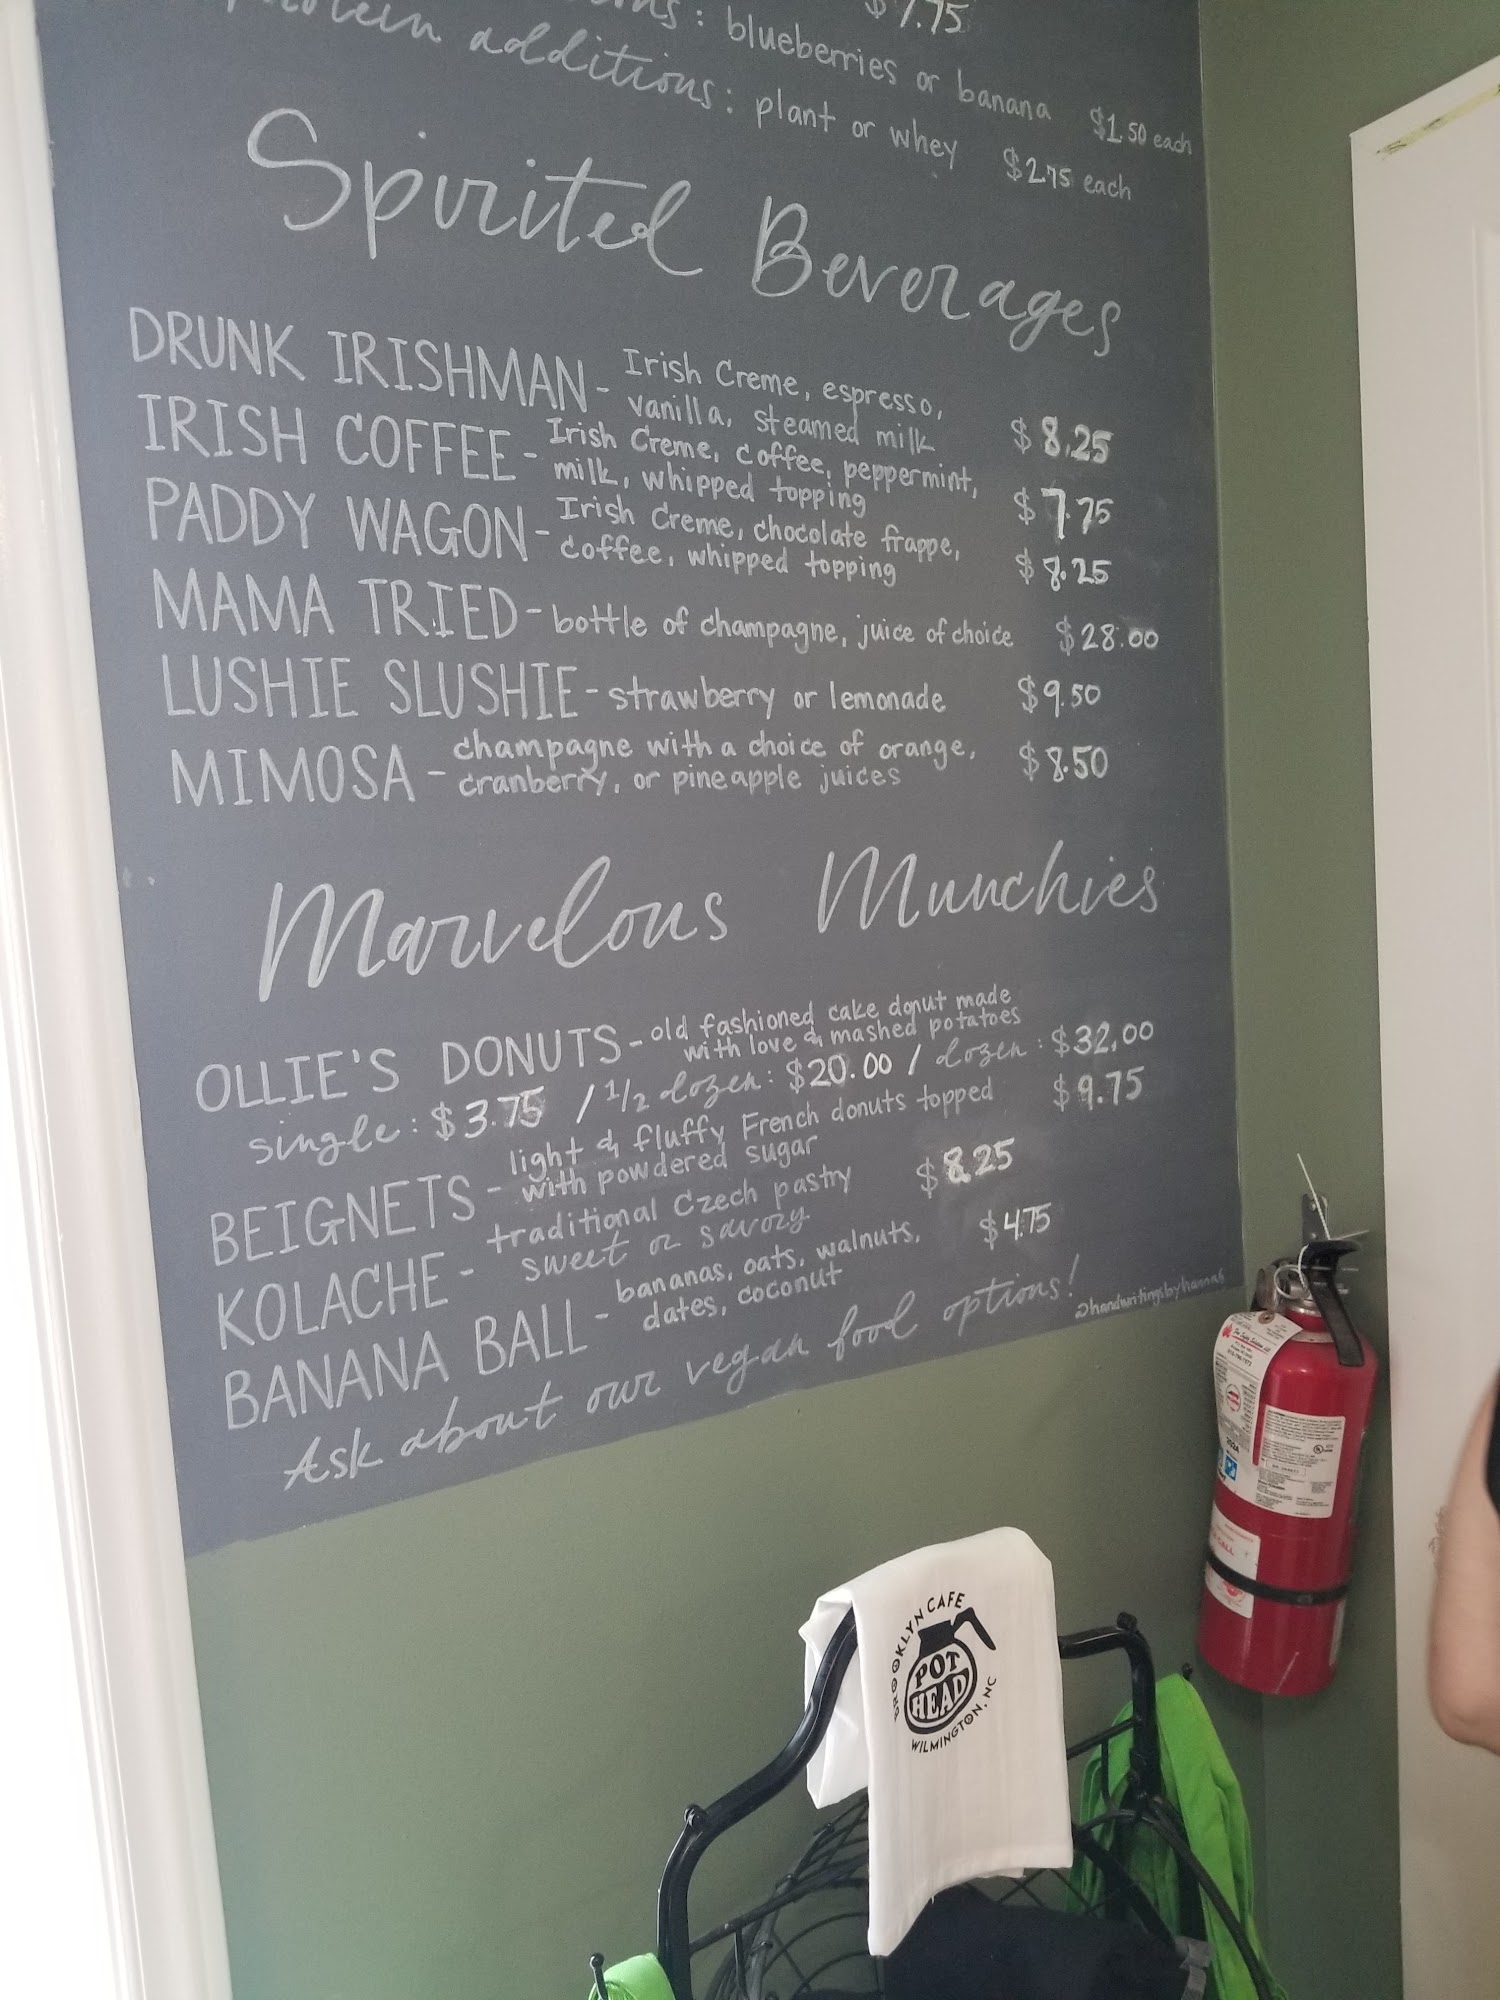 $7.75
: blueberries or banana $1.50 each
additions: plant or whey $2.75 each
Spirited Beverages
DRUNK IRISHMAN - Irish Creme, espresso,
vanilla, steamed milk $8.25
IRISH COFFEE - Irish Creme, coffee, peppermint,
milk, whipped topping $7.75
PADDY WAGON - Irish Creme, chocolate frappe,
coffee, whipped topping $8.25
MAMA TRIED - bottle of champagne, juice of choice $28.00
LUSHIE SLUSHIE - strawberry or lemonade $9.50
MIMOSA - champagne with a choice of orange,
cranberry, or pineapple juices $8.50
Marvelous Munchies
OLLIE'S DONUTS - old fashioned cake donut made
with love & mashed potatoes
single: $3.75 / 1/2 dozen: $20.00 / dozen: $32.00
BEIGNETS - light & fluffy French donuts topped
with powdered sugar $9.75
KOLACHE - traditional Czech pastry
sweet or savory $8.25
BANANA BALL - bananas, oats, walnuts,
dates, coconut $4.75
Ask about our vegan food options!
@handwritingsbyhannah
BROOKLYN CAFE
POT
HEAD
WILMINGTON, NC